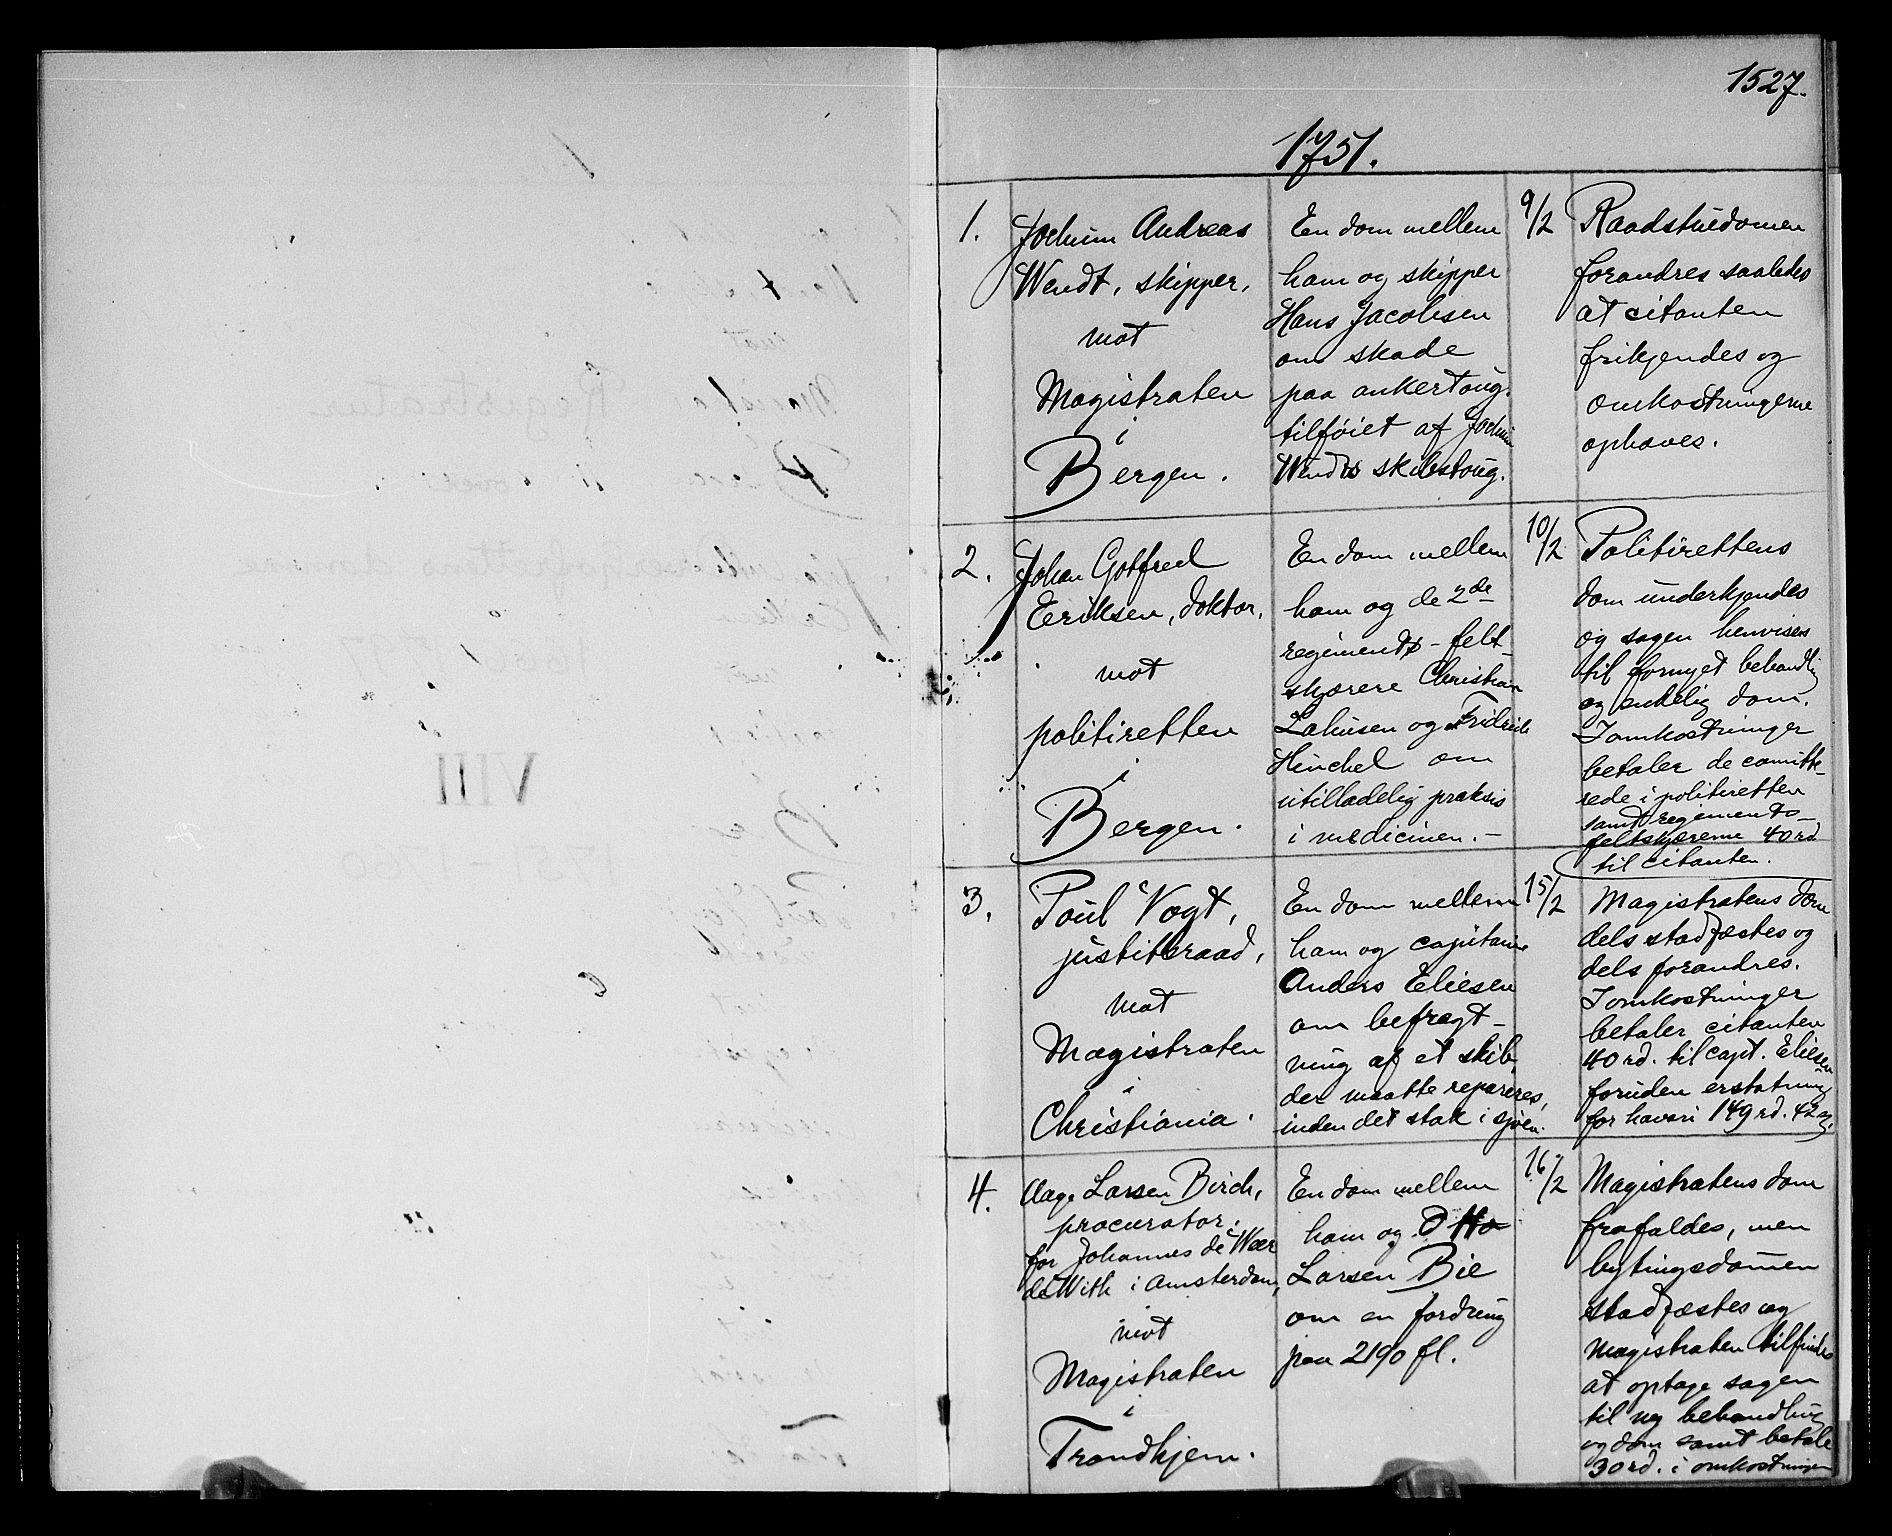 1527.
1751.
1.
Jochum Andreas
Wendt, skipper,
mot
Magistraten
i
Bergen.
En dom mellem
ham og skipper
Hans Jacobsen
om skade
paa ankertoug.
tilføiet af Jochum
Wendts skibstoug.
9/2
Raadstuedomen
forandres saaledes
at citanten
frikjendes og
omkostningerne
ophæves.
2.
Johan Gotfred
Eeriksen, doktor,
mot
politiretten
i
Bergen.
En dom mellem
ham og de 2de
regiments-felt-
skjærere Christian
Lahusen og Fridrich
Hinckel om
utilladelig praksis
i medicinen.-
10/2
Politirettens
dom underkjendes
og sagen henvises
til fornyet behandlig
og endelig dom.
I omkostninger
betaler de comitte-
rede i politiretten
samt regiments-
feltskjærerne 40 rd
til citanten.
3.
Poul Vogt,
justitsraad,
mot
Magistraten
i
Christiania.
En dom mellem
ham og capitaine
Anders Eliesen
om befragt-
ning af et skib,
der maatte repareres,
inden det stak i sjøen.
15/2
Magistratens dom
dels stadfæstes og
dels forandres.
I omkostninger
betaler citanten
40 rd. til capt. Eliesen
foruden erstatning
for havari 149 rd. 42
4.
Aage Larsen Birch,
procurator,
for Johannes de Wær
de With i Amsterdam,
mot
Magistraten
i
Trondhjem.
En dom mellem
ham og Otto
Larsen Bie
om en fordring
paa 2190 fl.
16/2
Magistratens dom
frafaldes, men
bytingsdommen
stadfæstes og
magistraten tilfindes
at optage sagen
til ny behandling
og dom samt betale
30 rd. i omkostninger
VIII